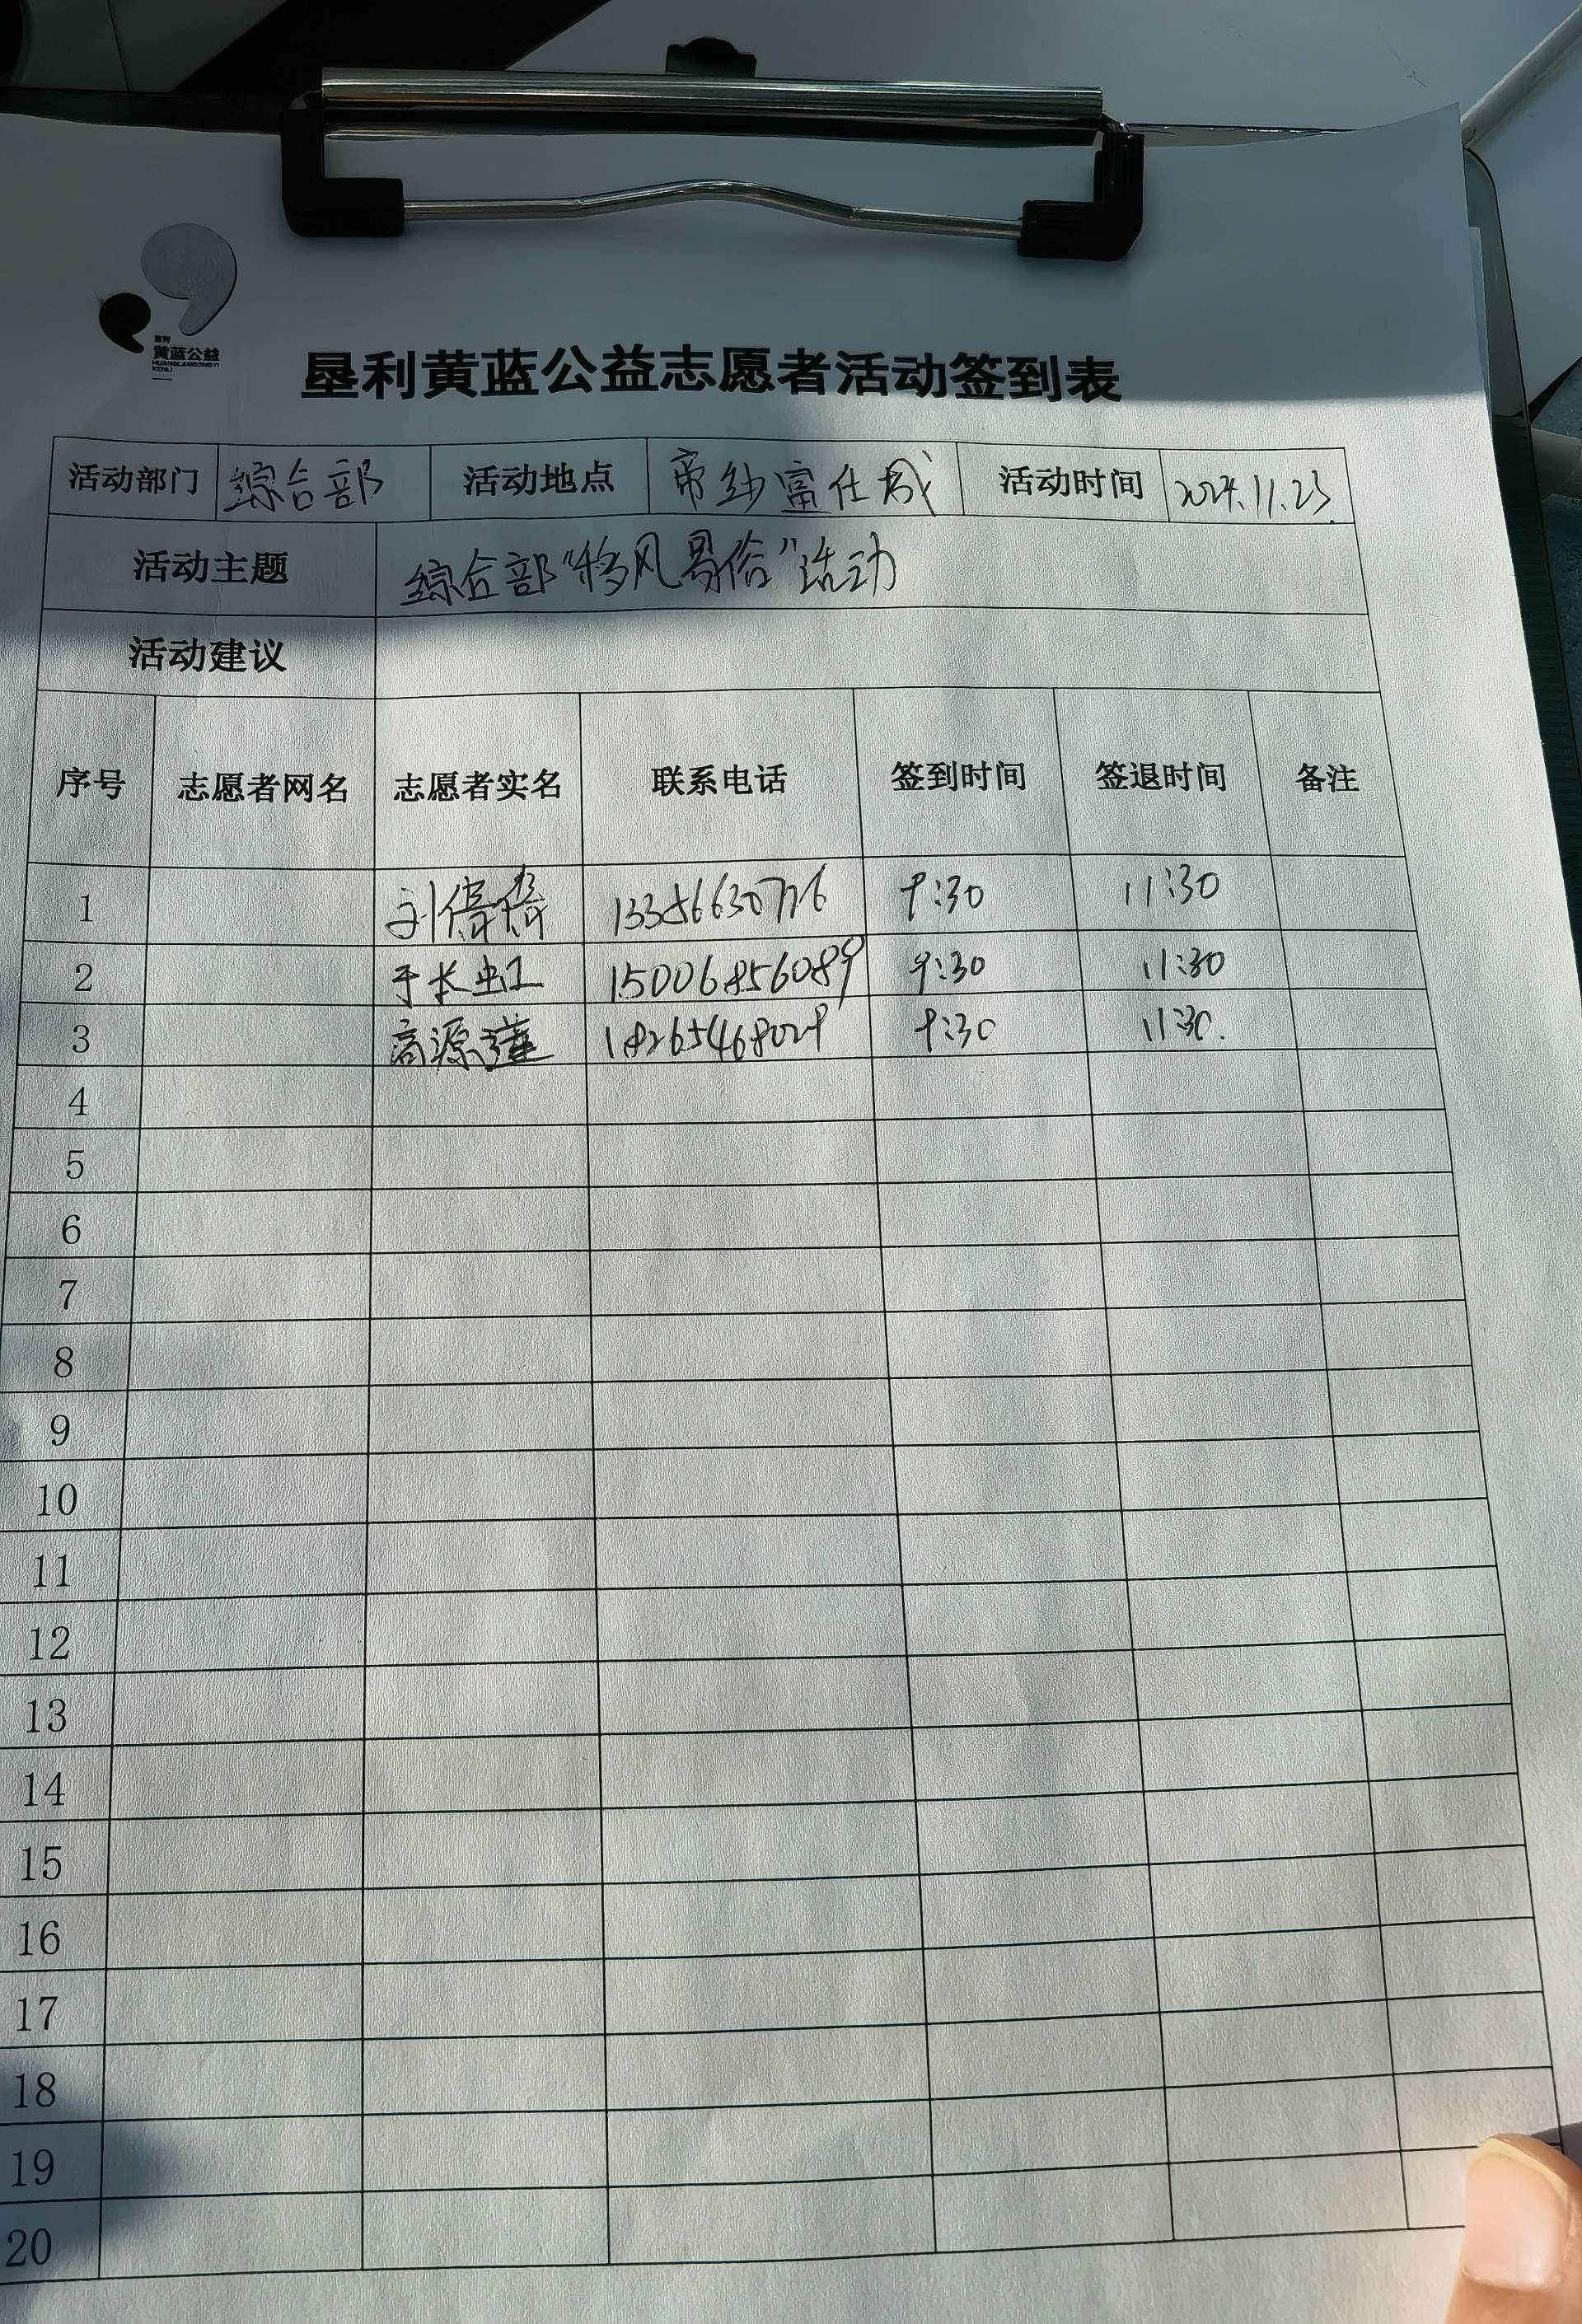 垦利
黄蓝公益
HUANGLANGONGYI
KENLI
垦利黄蓝公益志愿者活动签到表
活动部门 综合部 活动地点 帝纱富仕城 活动时间 2024.11.23
活动主题 综合部“移风易俗”活动
活动建议
序号 志愿者网名 志愿者实名 联系电话 签到时间 签退时间 备注
1 刘倩倩 9:30 11:30
2 于长虹 15006856089 9:30 11:30
3 高源 18265468029 9:30 11:30
4
5
6
7
8
9
10
11
12
13
14
15
16
17
18
19
20